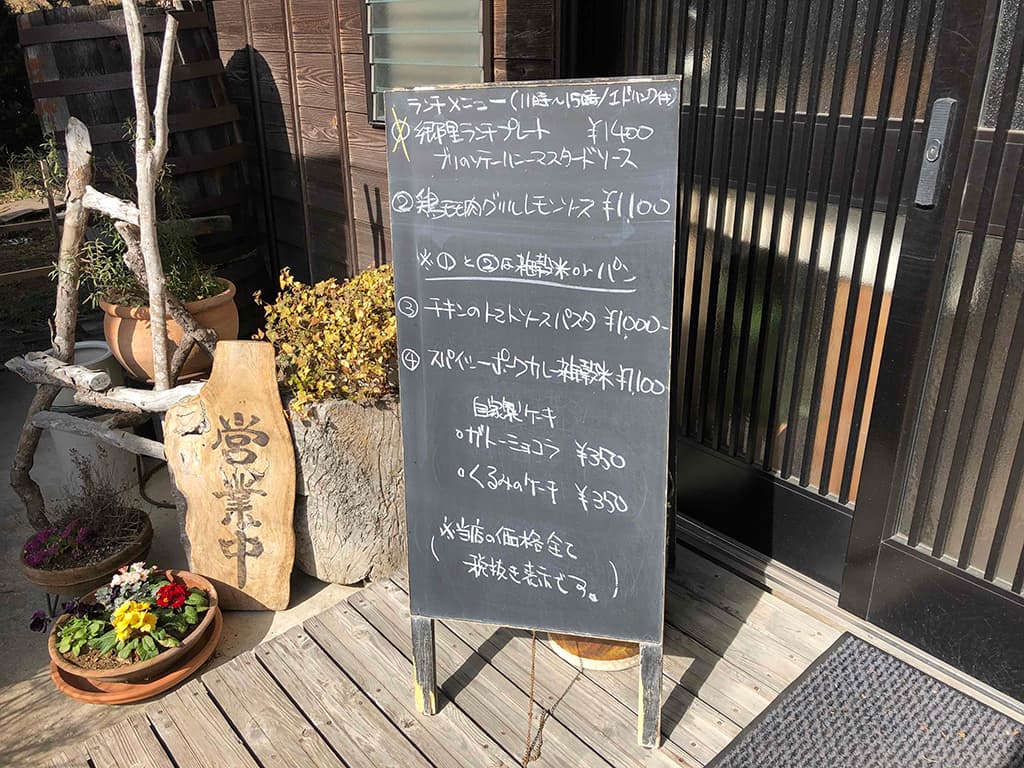 ランチメニュー(11時〜15時/1ドリンク付)
① 郷里ランチプレート ¥1400
ブリのソテーハニーマスタードソース
② 鶏もも肉グリルレモンソース ¥1,100
※①と②は雑穀米orパン
③ チキンのトマトソースパスタ ¥1,000-
④ スパイシーポークカレー雑穀米 ¥1,100
自家製ケーキ
○ガトーショコラ ¥350
○くるみのケーキ ¥350
(※当店の価格全て
税抜き表示です。)
営業中